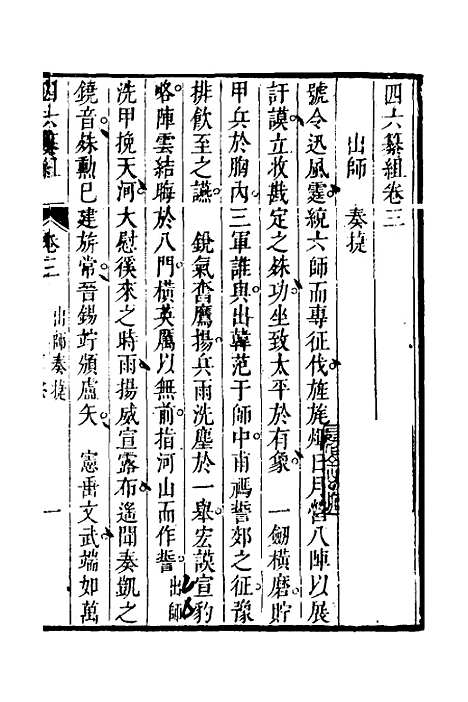 四六纂組卷三
出師 奏捷
號令迅風霆統六師而專征伐旌旄煥日月營八陣以展
訏謨立收戡定之殊功坐致太平於有象 一劒橫磨貯
甲兵於胸內三軍誰與出韓范于師中甫禡誓郊之征豫
排飲至之讌 銳氣奮鷹揚兵雨洗塵於一舉宏謨宣豹
略陣雲結晦於八門橫英厲以無前指河山而作誓 出師
洗甲挽天河大慰徯來之時雨揚威宣露布遙聞奏凱之
鐃音殊勳已建旂常晉錫竚頒盧矢 憲乗文武端如萬
四六纂組 卷三 出師奏捷 一